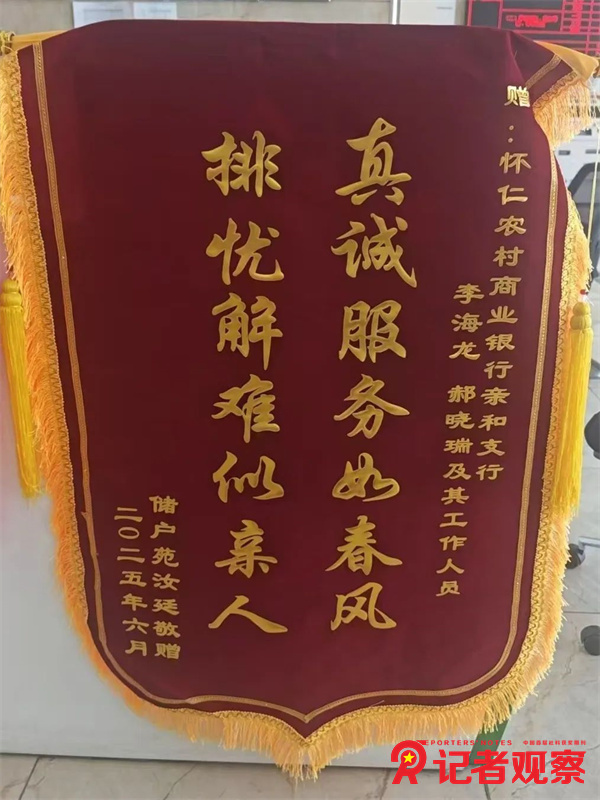 赠：怀仁农村商业银行亲和支行
李海龙 郝晓瑞及其工作人员
真诚服务如春风
排忧解难似亲人
储户苑汝廷敬赠
二〇二五年六月
记者观察